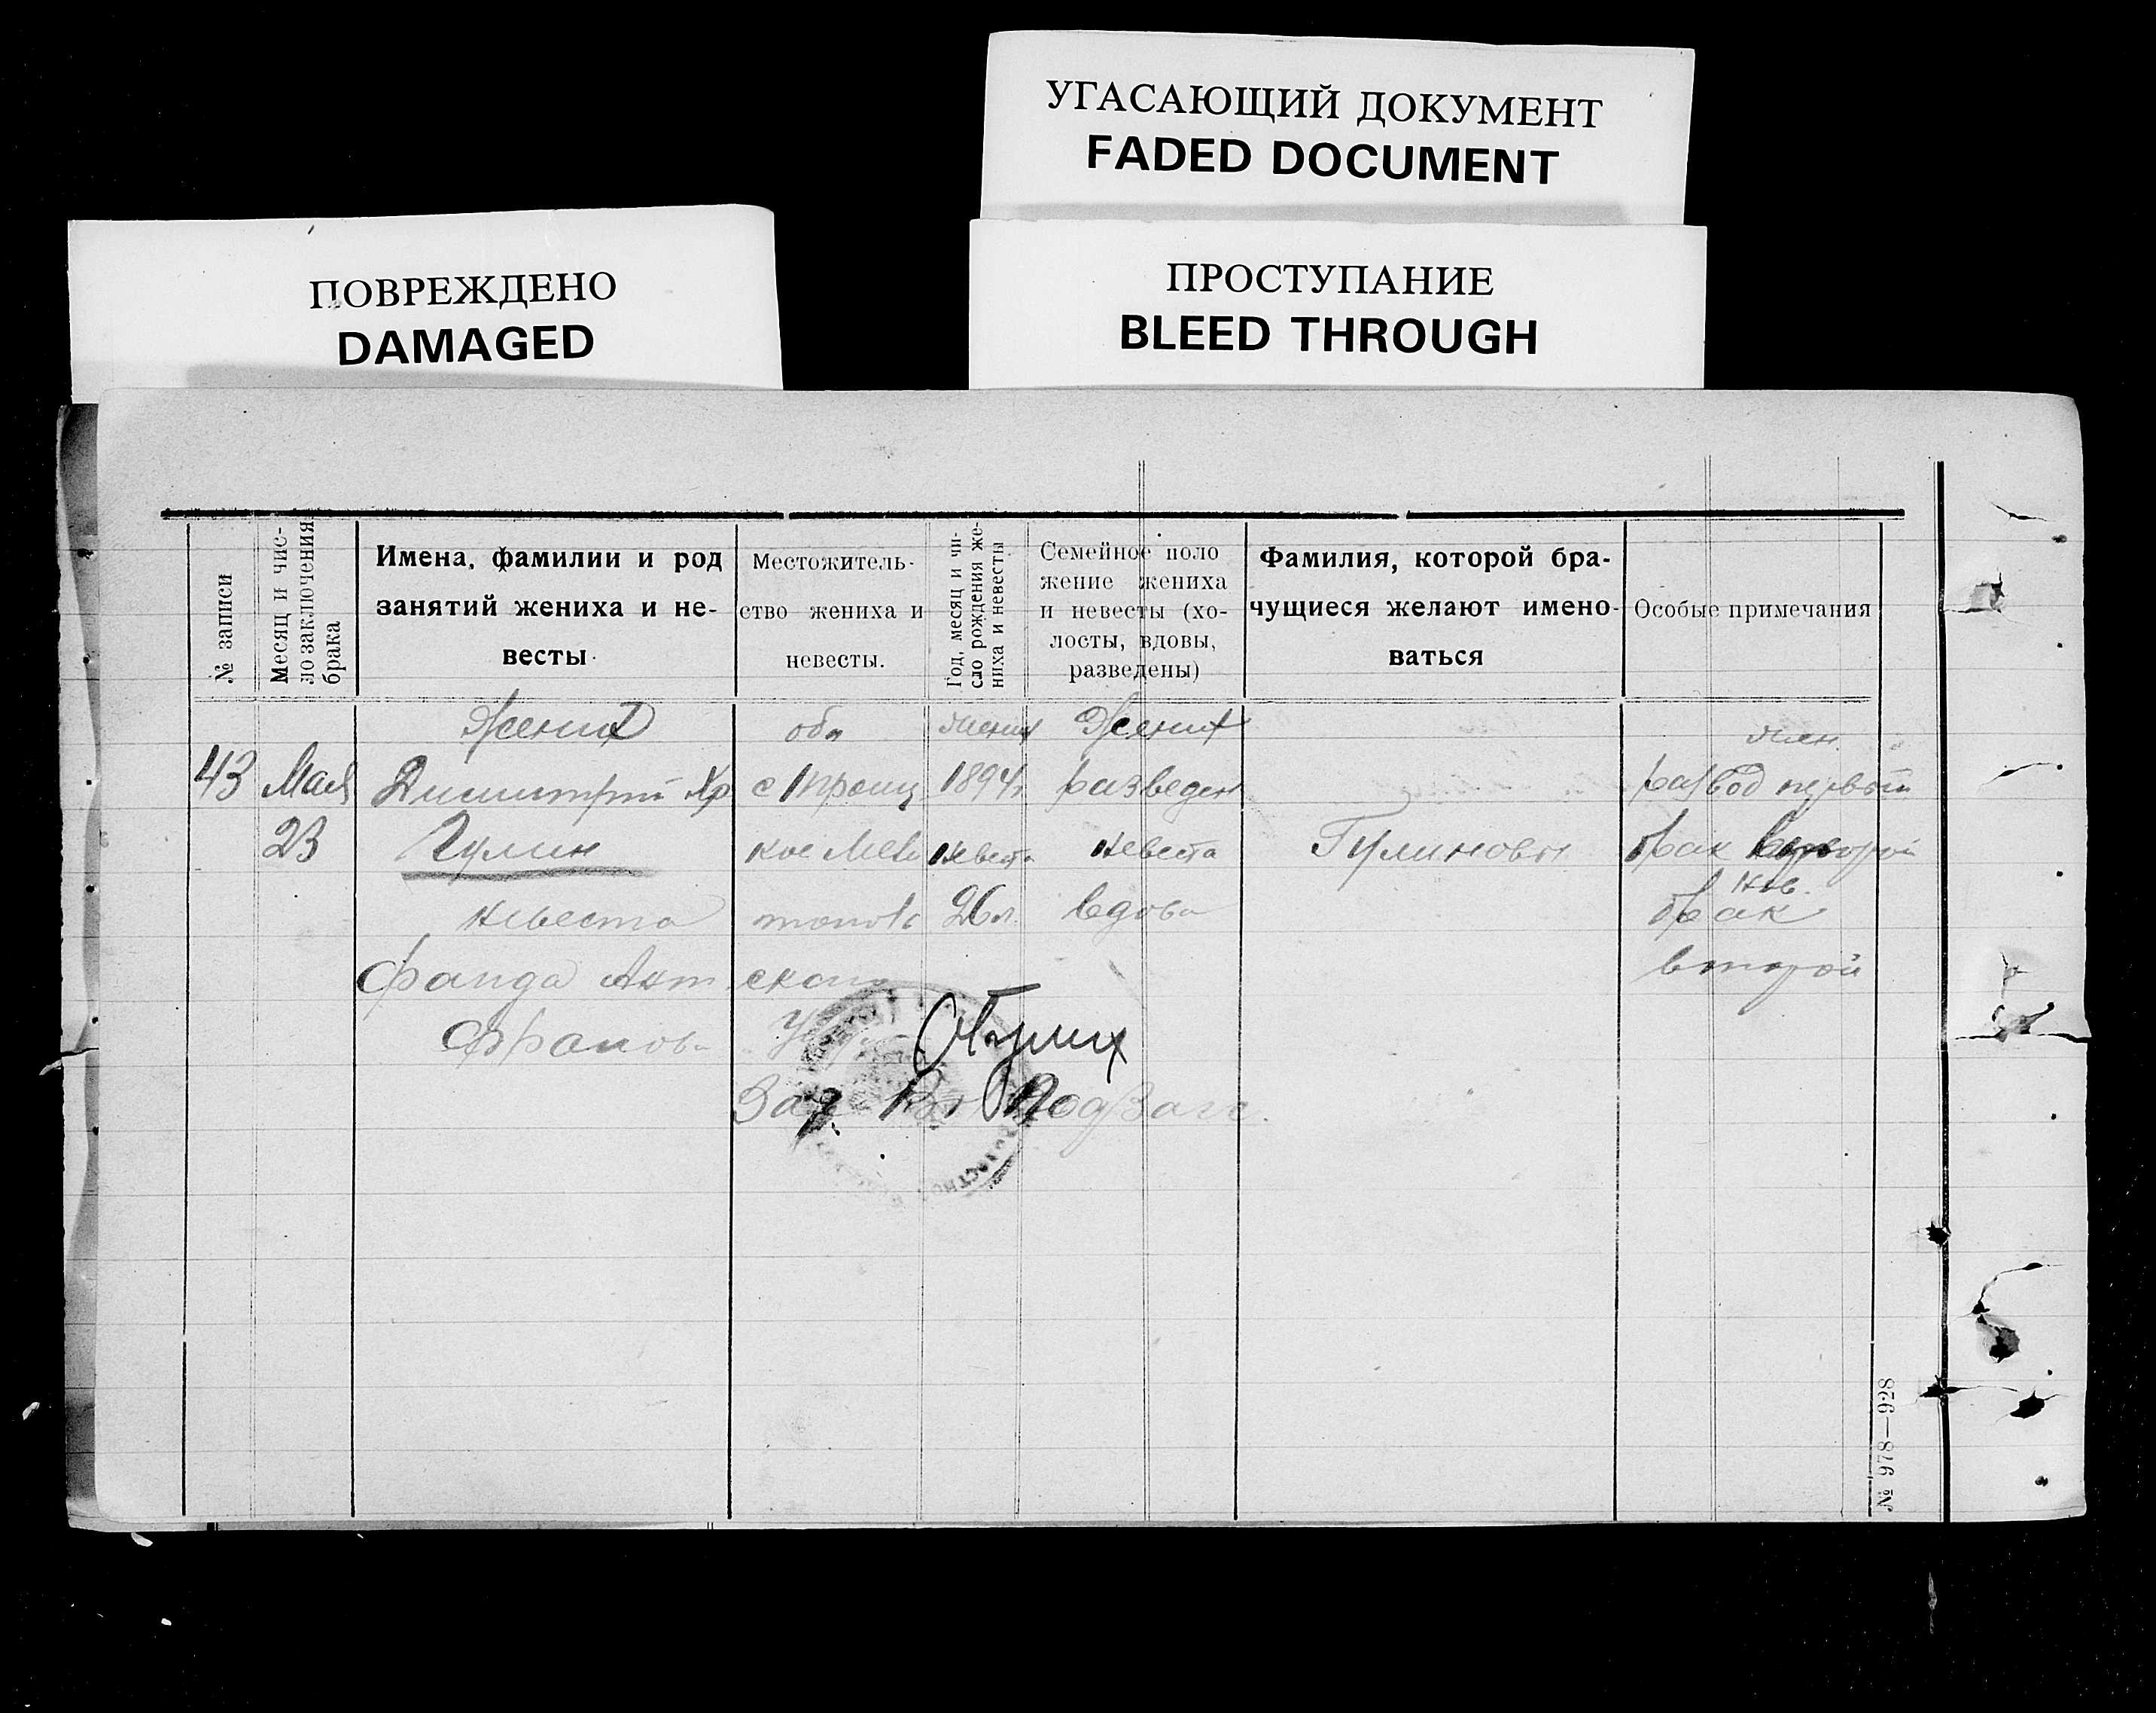 УГАСАЮЩИЙ ДОКУМЕНТ
FADED DOCUMENT
ПОВРЕЖДЕНО
DAMAGED
ПРОСТУПАНИЕ
BLEED THROUGH
№ записи
Месяц и чис-
ло заключения
брака
Имена, фамилии и род
занятий жениха и не-
весты.
Местожитель-
ство жениха и
невесты.
Год, месяц и чи-
сло рождения же-
ниха и невесты
Семейное поло
жение жениха
и невесты (хо-
лосты, вдовы,
разведены)
Фамилия, которой бра-
чущиеся желают имено-
ваться
Особые примечания
43
Мая
23
Жених
Димитрий Хр
Гулин
Невеста
оба
кое Мели
топольс
жених
1894г
Невеста
26 л.
Жених
разведен
Невеста
вдова
Гулиновы
жен.
развод первый
брак второй
Нев.
брак
второй
Зав.
№ 978—928